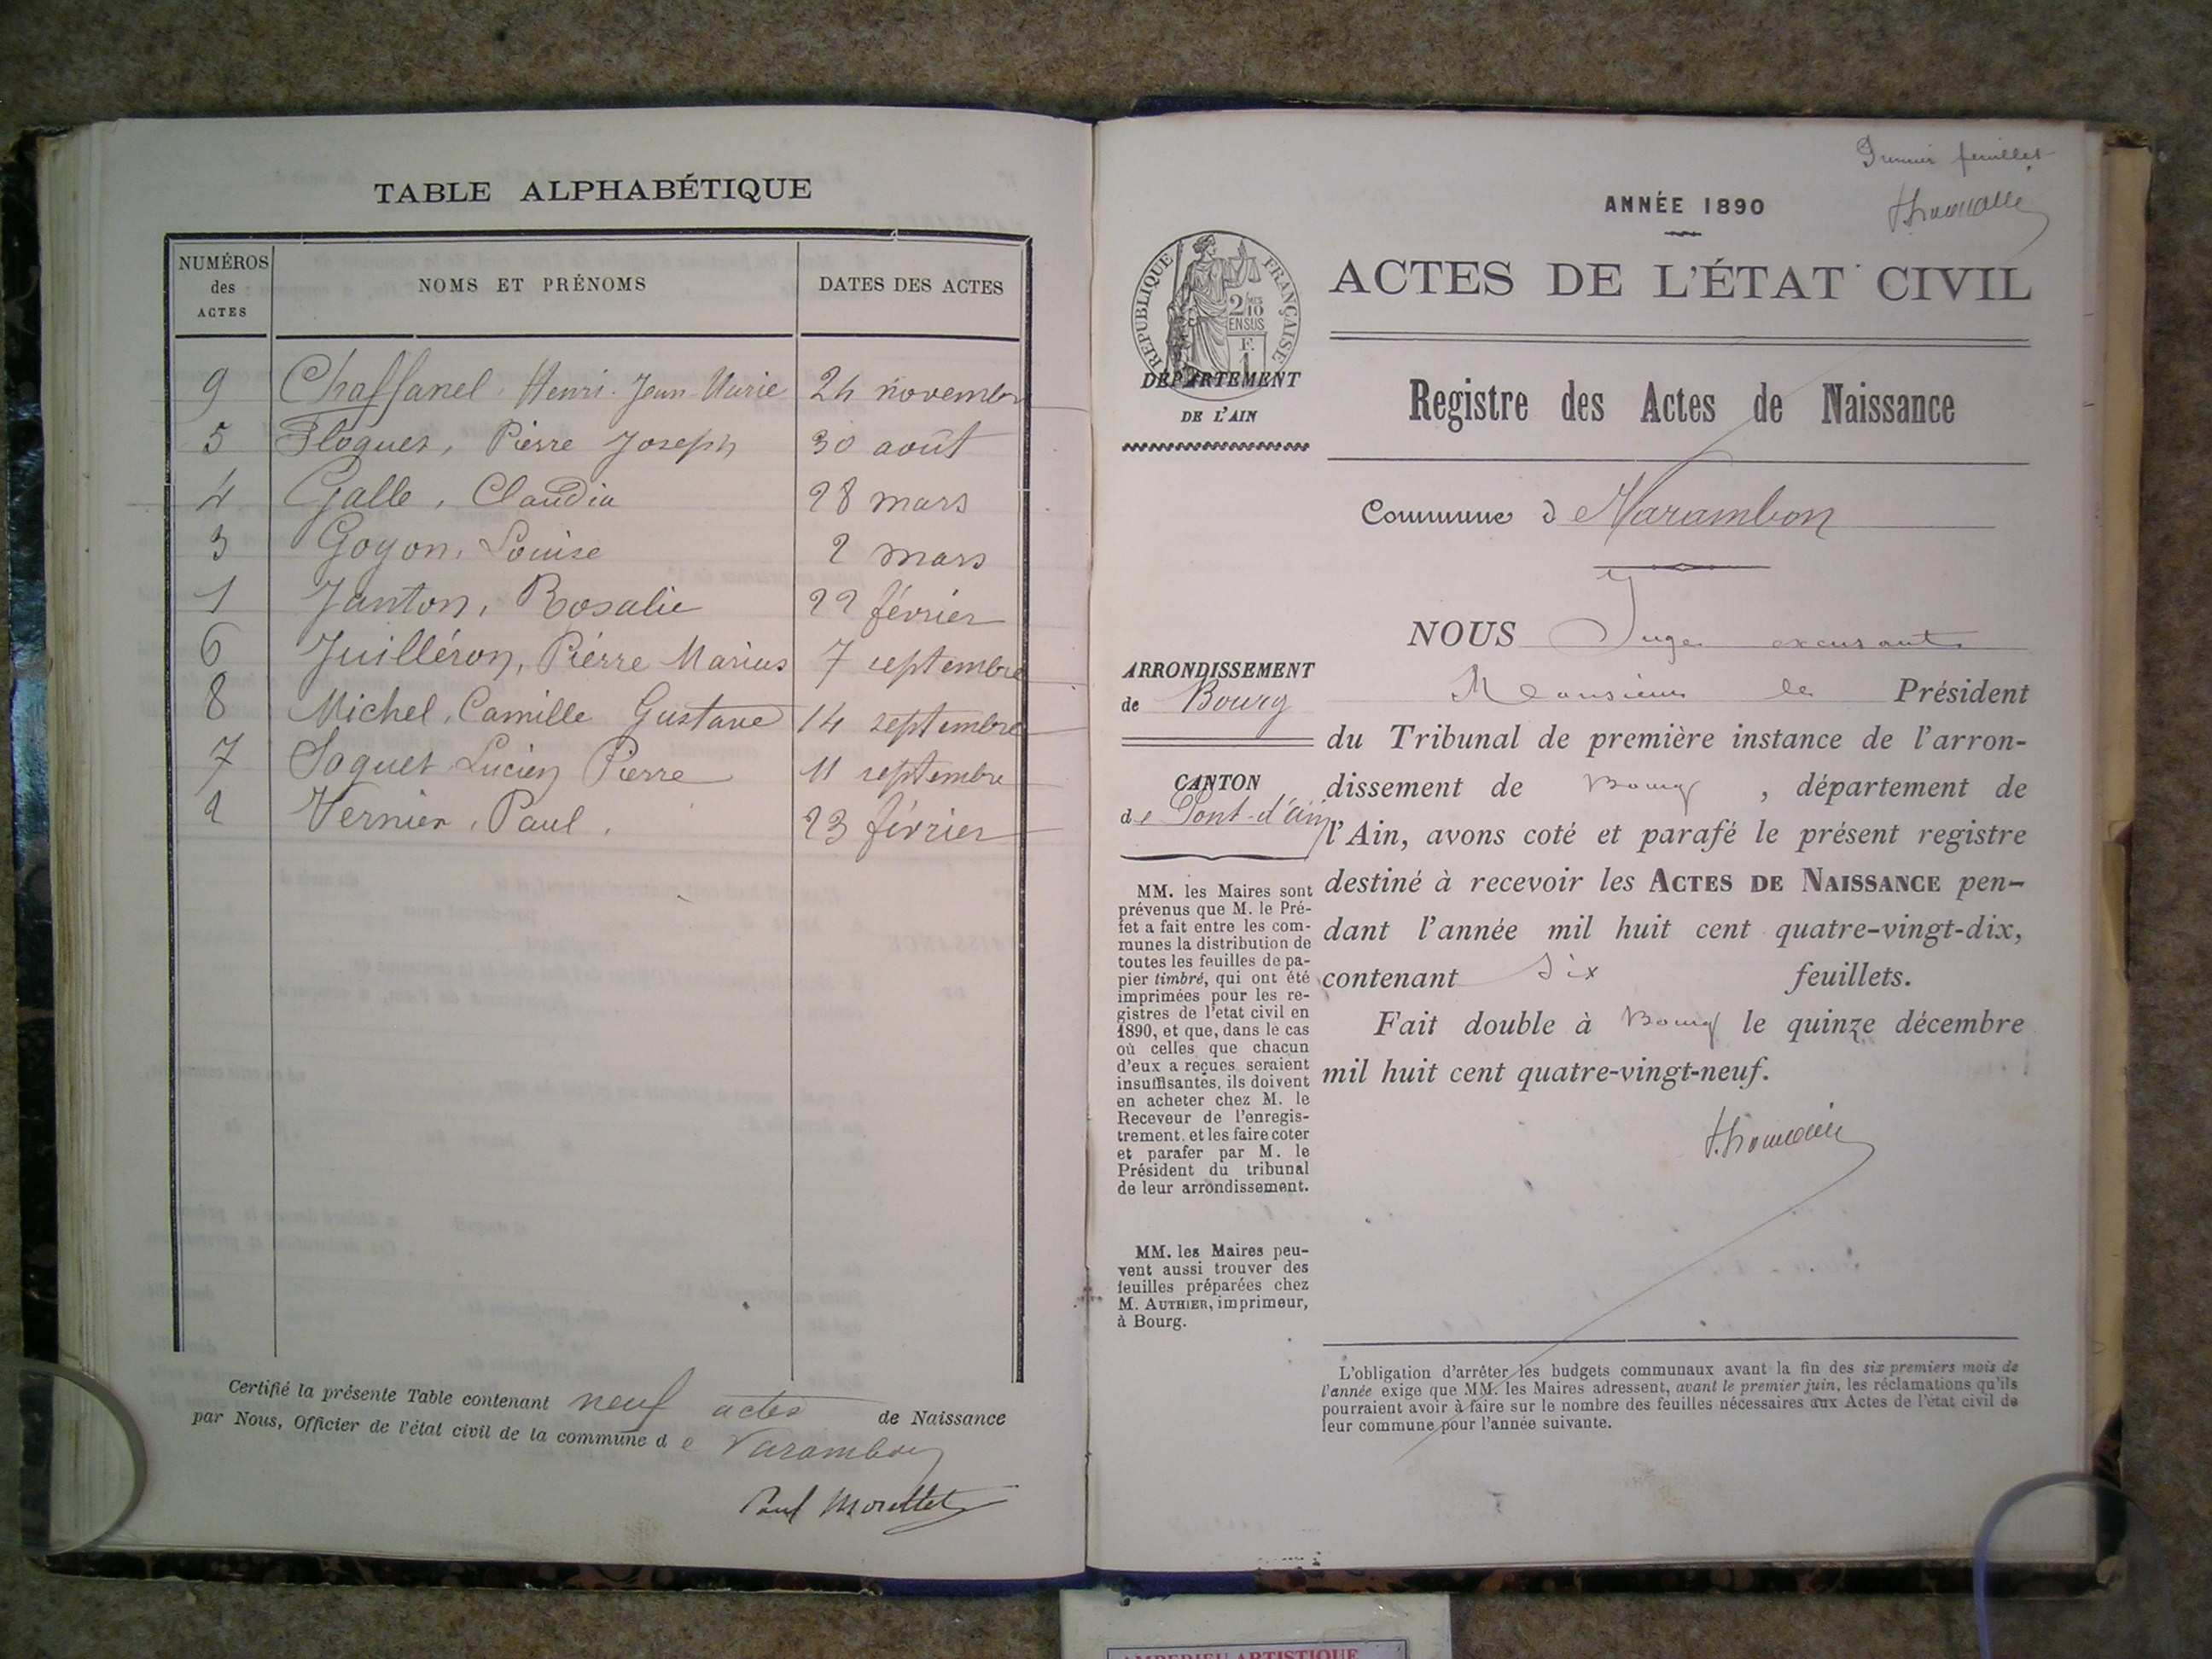 TABLE ALPHABÉTIQUE
NUMÉROS des ACTES
NOMS ET PRÉNOMS
DATES DES ACTES
9 Chaffanel Henri Jean Marie 24 novembre
5 Floquet, Pierre Joseph 30 août
4 Galle, Claudia 28 mars
3 Goyon, Louise 2 mars
1 Janton, Rosalie 22 février
6 Juilléron, Pierre Marius 7 septembre
8 Michel, Camille Gustave 14 septembre
7 Soquet Lucien Pierre 11 septembre
2 Vernier, Paul. 23 février
Certifié la présente Table contenant neuf actes de Naissance
par Nous, Officier de l'état civil de la commune de Varambon
Paul Morellet
Premier feuillet
ANNÉE 1890
RÉPUBLIQUE FRANÇAISE
2/10 EN SUS
F. 1
ACTES DE L'ÉTAT CIVIL
DÉPARTEMENT
DE L'AIN
Registre des Actes de Naissance
Commune de Varambon
ARRONDISSEMENT
de Bourg
CANTON
de Pont-d'ain
MM. les Maires sont
prévenus que M. le Pré-
fet a fait entre les com-
munes la distribution de
toutes les feuilles de pa-
pier timbré, qui ont été
imprimées pour les re-
gistres de l'etat civil en
1890, et que, dans le cas
où celles que chacun
d'eux a reçues seraient
insuffisantes, ils doivent
en acheter chez M. le
Receveur de l'enregis-
trement. et les faire coter
et parafer par M. le
Président du tribunal
de leur arrondissement.
MM. les Maires peu-
vent aussi trouver des
feuilles préparées chez
M. AUTHIER, imprimeur,
à Bourg.
NOUS Juge excusant
Monsieur le Président
du Tribunal de première instance de l'arron-
dissement de Bourg, département de
l'Ain, avons coté et parafé le présent registre
destiné à recevoir les ACTES DE NAISSANCE pen-
dant l'année mil huit cent quatre-vingt-dix,
contenant Six feuillets.
Fait double à Bourg le quinze décembre
mil huit cent quatre-vingt-neuf.
L'obligation d'arrêter les budgets communaux avant la fin des six premiers mois de
l'année exige que MM. les Maires adressent, avant le premier juin, les réclamations qu'ils
pourraient avoir à faire sur le nombre des feuilles nécessaires aux Actes de l'état civil de
leur commune pour l'année suivante.
AMBERIEU ARTISTIQUE